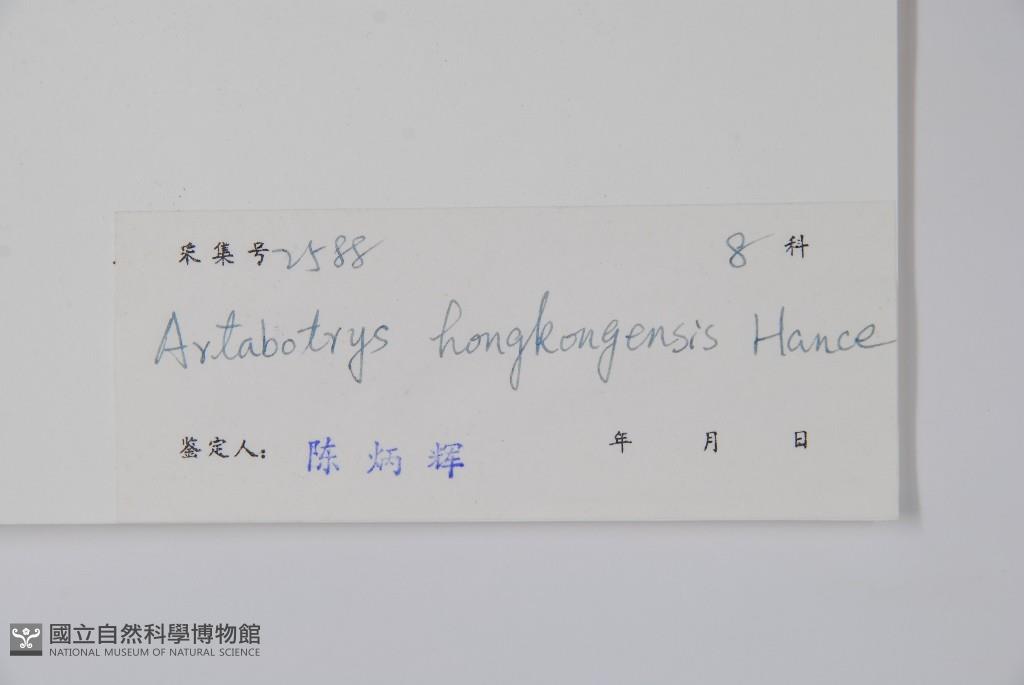 采集号 2588 8 科
Artabotrys hongkongensis Hance
鉴定人: 陈炳辉 年 月 日
國立自然科學博物館
NATIONAL MUSEUM OF NATURAL SCIENCE